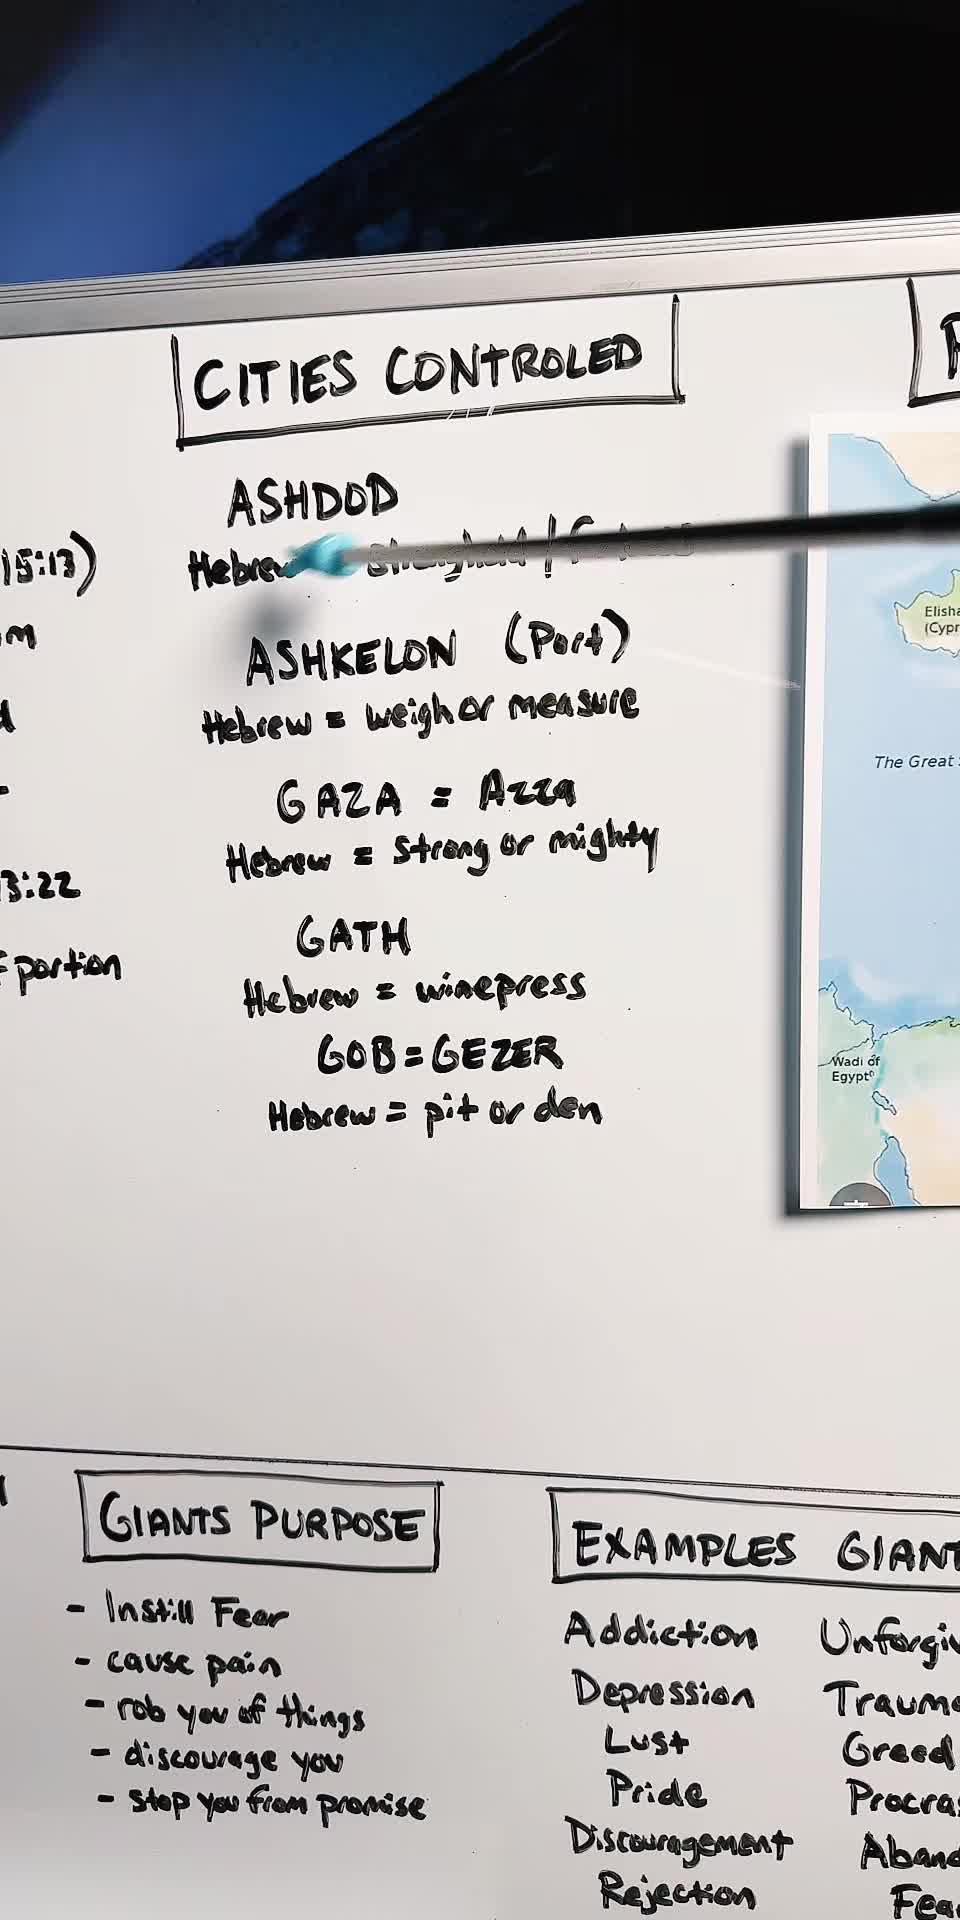 CITIES CONTROLED
ASHDOD
Hebrew
15:13)
ASHKELON (Port)
Hebrew = weigh or measure
GAZA = Azza
Hebrew = strong or mighty
3:22
GATH
portion
Hebrew = winepress
GOB = GEZER
Hebrew = pit or den
The Great
Wadi of
Egypt
GIANTS PURPOSE
- Instill Fear
- cause pain
- rob you of things
- discourage you
- stop you from promise
EXAMPLES
Addiction
Depression
Lust
Greed
Pride
Discouragement
Rejection